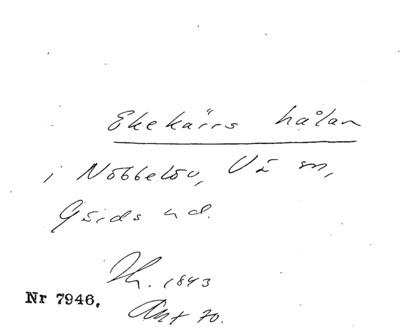 Ekekärrs hålan
i Nöbbelöv, Vä sn,
Gärds hd.
1843
Nr 7946.
Ant 70.